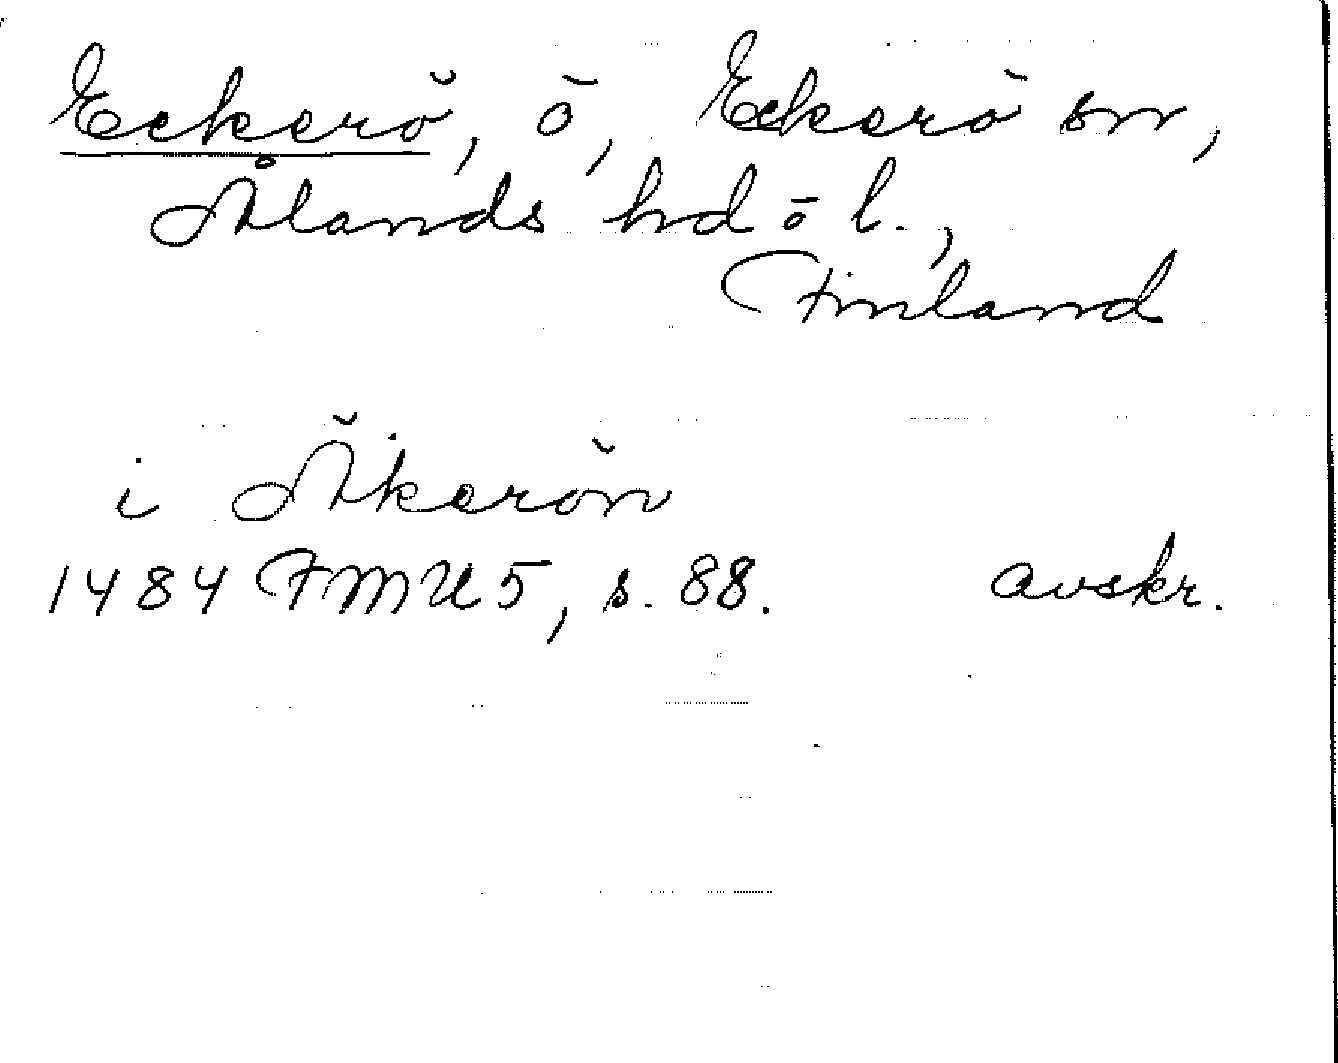 Eckerö, ö, Eckerö sn,
Ålands hd o l.,
Finland
i Äkerön
1484 FMU 5, s. 88. avskr.